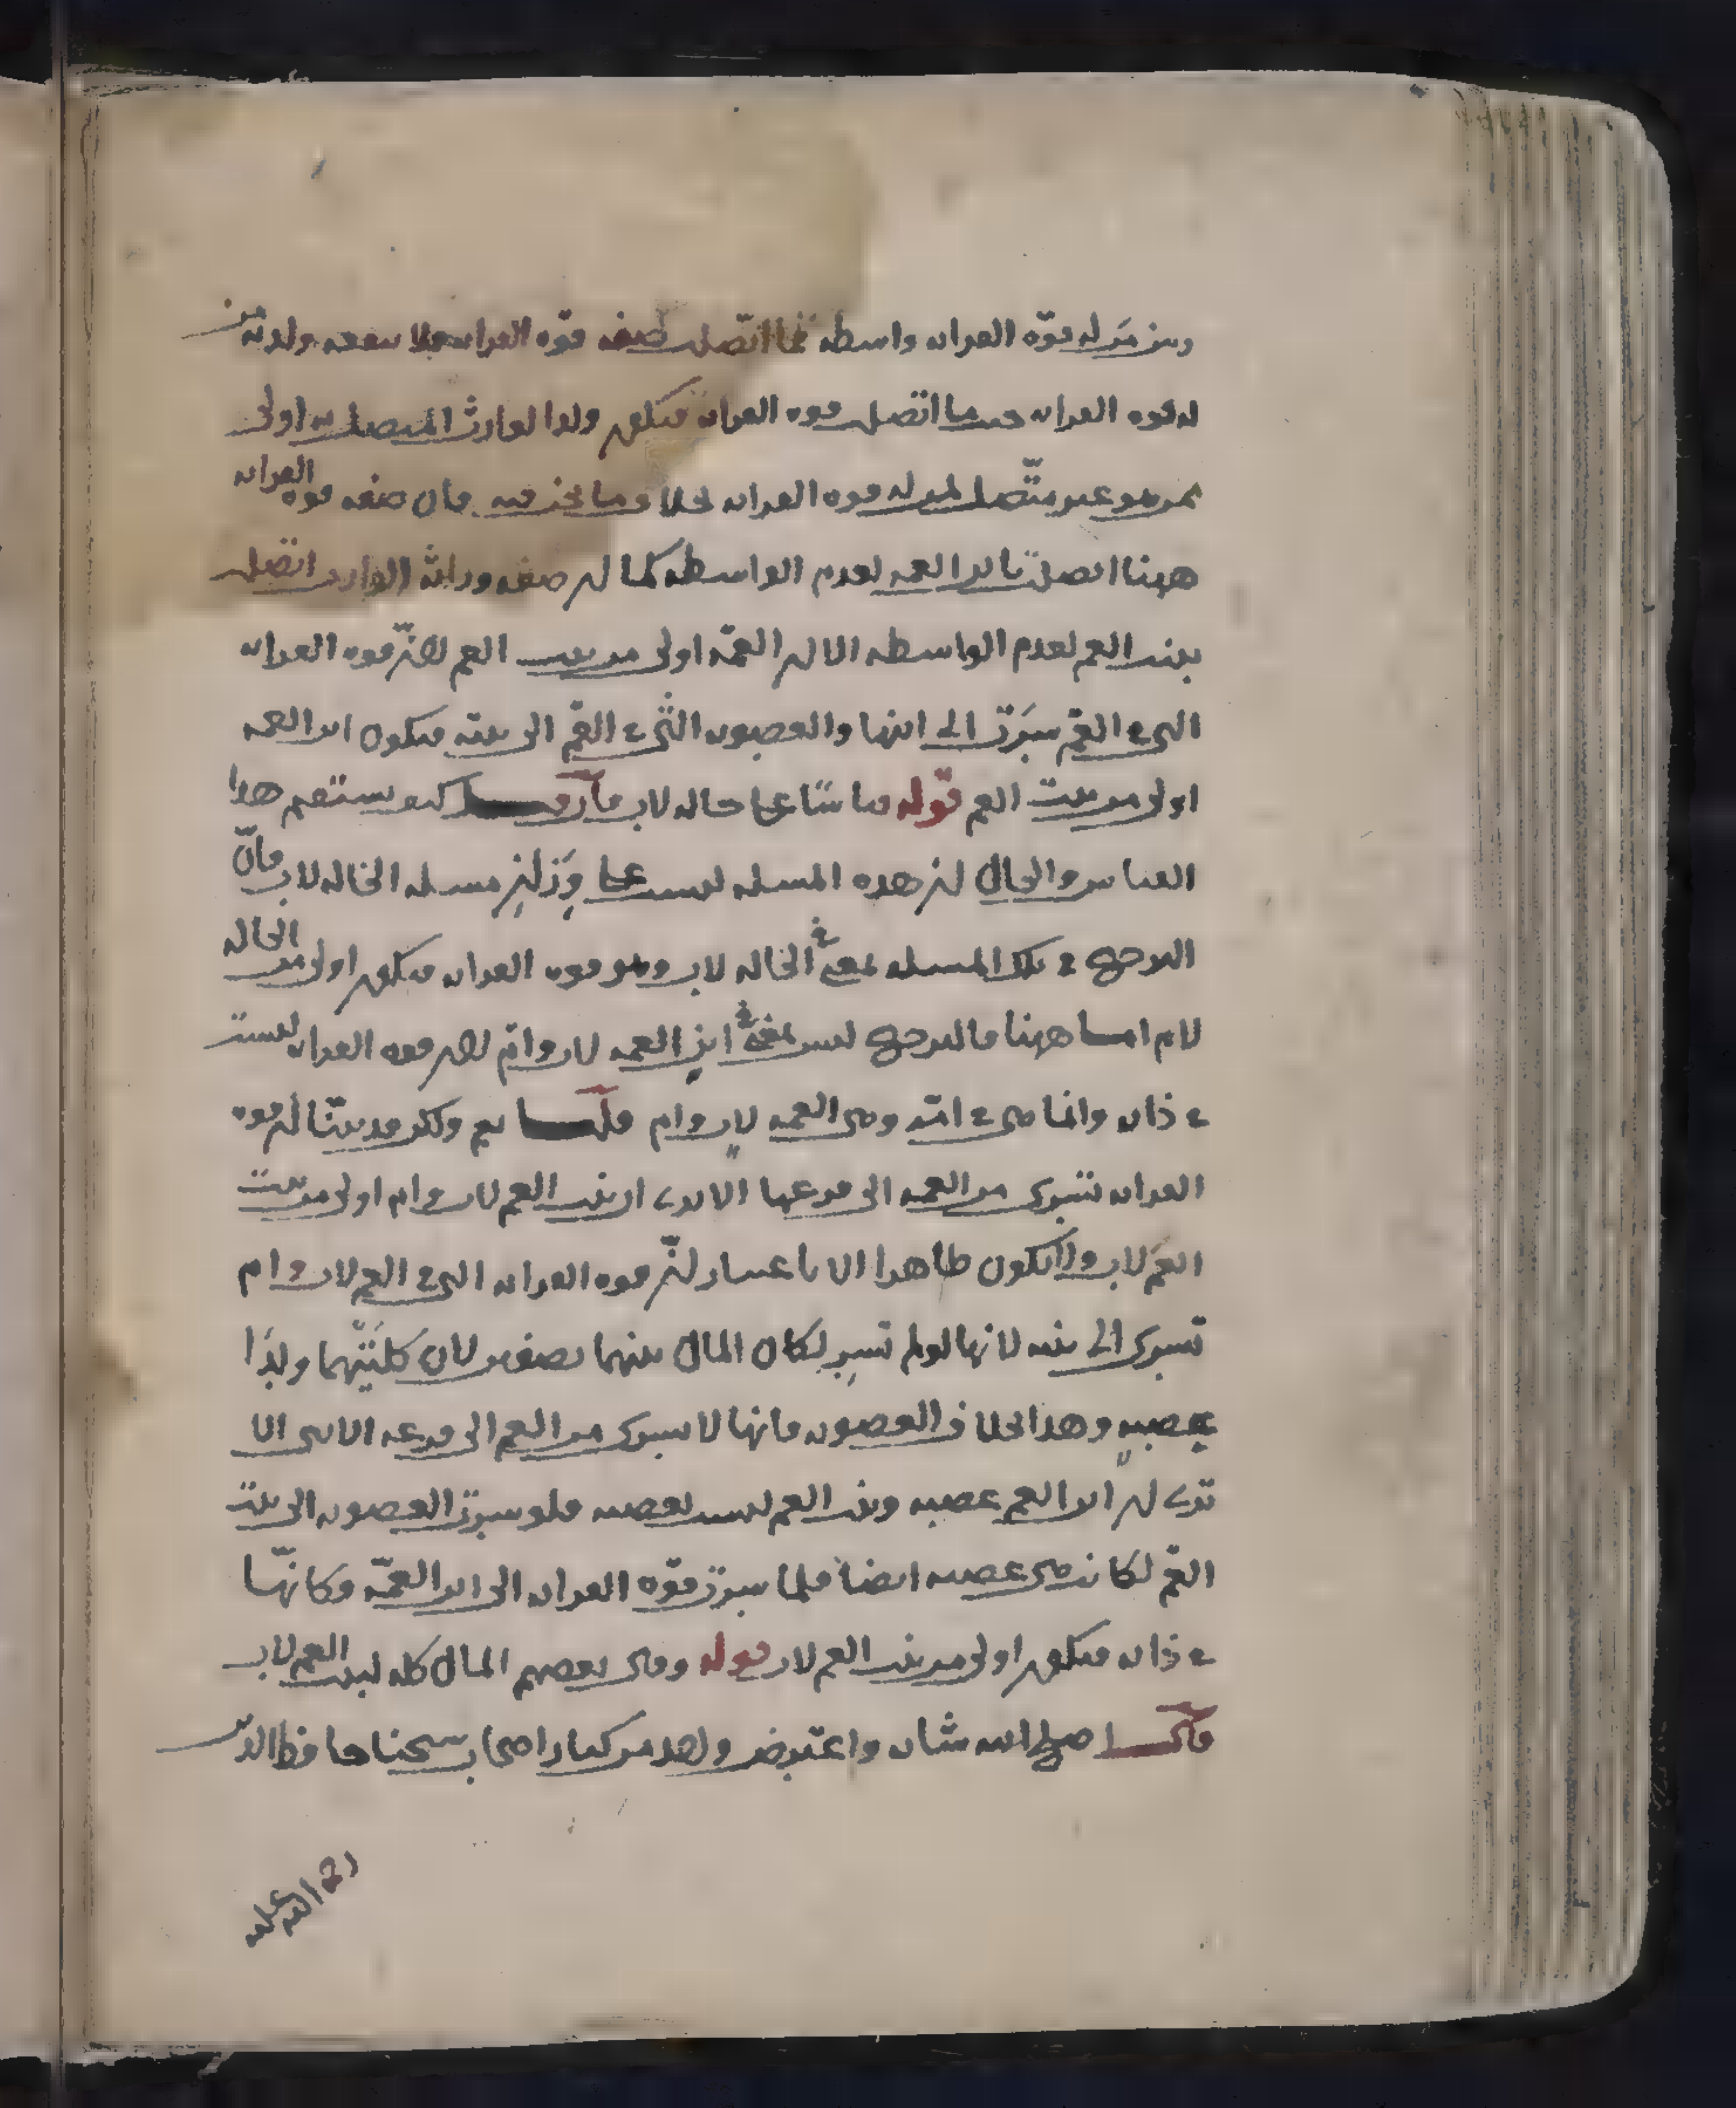 وبين مَن له قوّه القرابه واسطه فما اتّصلت صفه قوّه القرابه فلا ينفعه ولدية من
له قوه القرابه حسب ما اتصل قوه القرابه فيكون ولد الوارث المتصل به اولى
ممن هو غير متّصل لمن له قوه القرابه بخلاف ما نحن فيه فان صفه قوه القرابه
ههنا اتصلت بابن العمه لعدم الواسطه كما ان صفه وراثة الوارث اتصلت
ببنت العم لعدم الواسطه الا ان ابن العمّه اولى من بنت العم لانّ قوه القرابه
التي في العمّ سَرَت الى ابنها والعصوبه التّي في العمّ الى بنته فيكون ابن العمه
اولى من بنت العم قوله قياسا على خاله لاب فان قلت كيف يستقيم هذا
القياس والحال ان هذه المسله ليست على وِزَان مسله الخاله لاب فانّ
الترجيح في تلك المسله لمعنى في الخاله لاب وهو قوه القرابه فيكون اولى من الخاله
لام اما ههنا فالترجيح ليس لمعنى في ابن العمه لاب وامّ لان قوه القرابه ليست
في ذاته وانما هي في امّه وهي العمه لاب وام قلت نعم ولكن قد بيّنّا ان قوه
القرابه تسرى من العمه الى فرعها الا ترى ان بنت العم لاب وام اولى من بنت
العم لاب ولا يكون ظاهرا الا باعتبار انّ قوه القرابه التي في العم لاب وام
تسرى الى بنته لانها لو لم تسرِ لكان المال بينهما نصفين لان كلتَيْهما ولدَا
عصبه وهذا بخلاف العصوبه فانها لا تسرى من العم الى فرعه الانثى الا
ترى ان ابن العم عصبه وبنت العم ليست بعصبه فلو سرت العصوبه الى بنت
العمّ لكانت هي عصبه ايضا فلما سرت قوّه القرابه الى ابن العمّه وكانّها
في ذاته فيكون اولى من بنت العم لاب قوله وقال بعضهم المال كله لبنت العم لاب
قال اصلح الله شانه واعترض واحد من كبار اصحاب شيخنا حافظ الدين
رحمة الله عليه